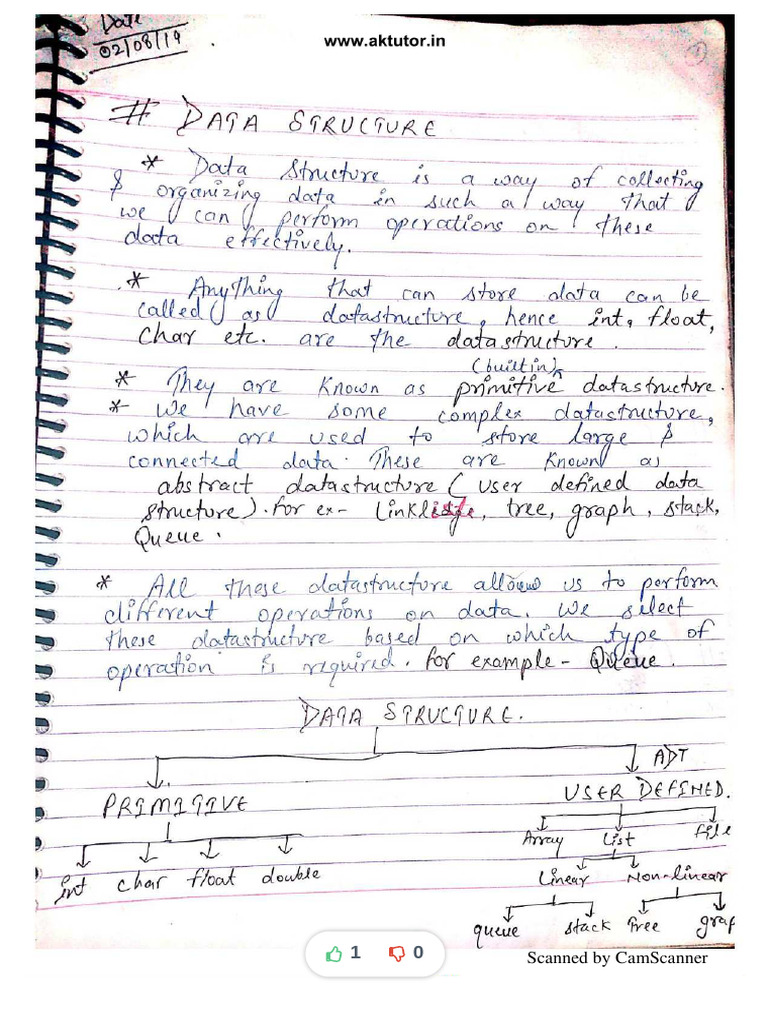 Date
02/08/19
www.aktutor.in
1
# DATA STRUCTURE
* Data Structure is a way of collecting
& organizing data in such a way that
we can perform operations on these
data effectively.
* Anything that can store data can be
called as datastructure, hence int, float,
char etc. are the datastructure.
(builtin)
* They are known as primitive datastructure.
* We have some complex datastructure,
which are used to store large &
connected data. These are known as
abstract datastructure (user defined data
structure). for ex- Linkliste, tree, graph, stack,
Queue.
* All these datastructure allows us to perform
different operations on data. We select
these datastructure based on which type of
operation is required. for example - Queue.
DATA STRUCTURE.
ADT
PRIMITIVE USER DEFINED.
Array List file
int char float double
Linear Non-linear
queue stack Tree grap
1 0
Scanned by CamScanner